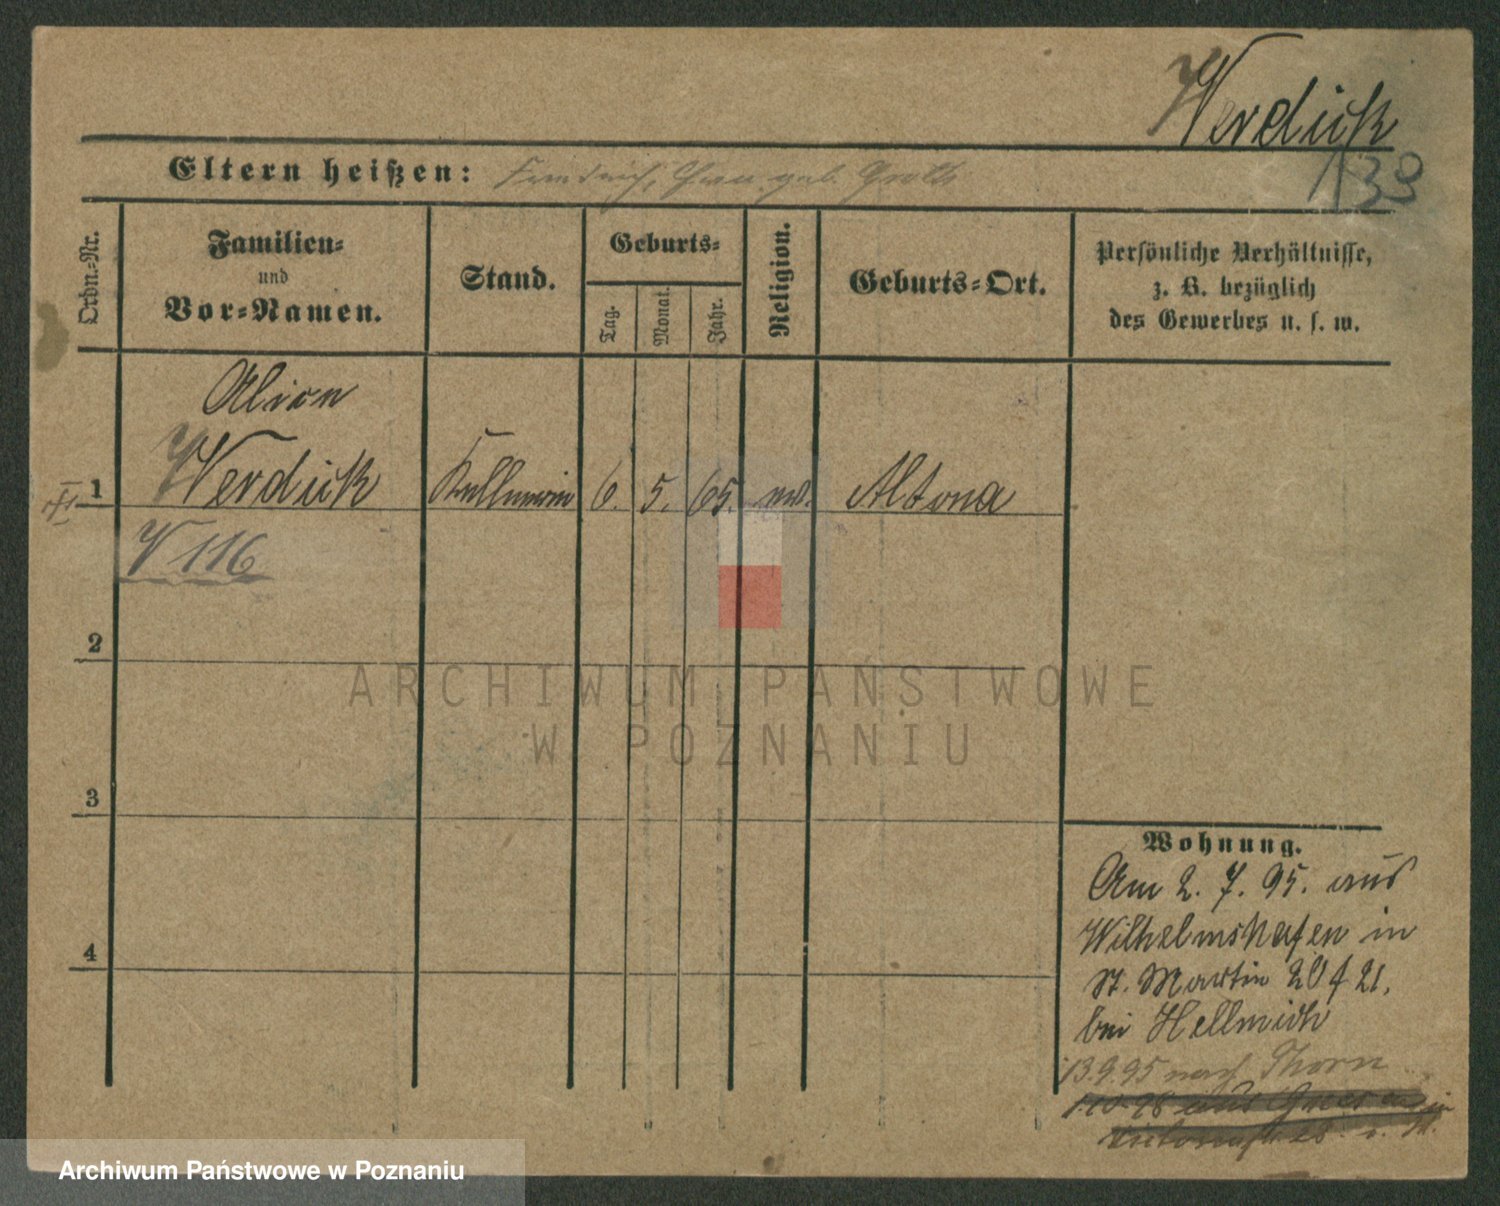 Werdick
138
Eltern heißen: Friedrich, Frau geb. Groth
Ordn.-Nr.
Familien-
und
Vor-Namen.
Stand.
Geburts-
Tag.
Monat.
Jahr.
Religion.
Geburts-Ort.
Persönliche Verhältnisse,
z. B. bezüglich
des Gewerbes u. s. w.
Alion
1 Werdick Kellnerin 6. 5. 65. ev. Altona
V 116
2
3
4
Wohnung.
Am 2. 7. 95. aus
Wilhelmshafen in
St. Martin 20/21.
bei Hellmich
13.9.95 nach Thorn
1.10.98 aus
ARCHIWUM PAŃSTWOWE
W POZNANIU
Archiwum Państwowe w Poznaniu